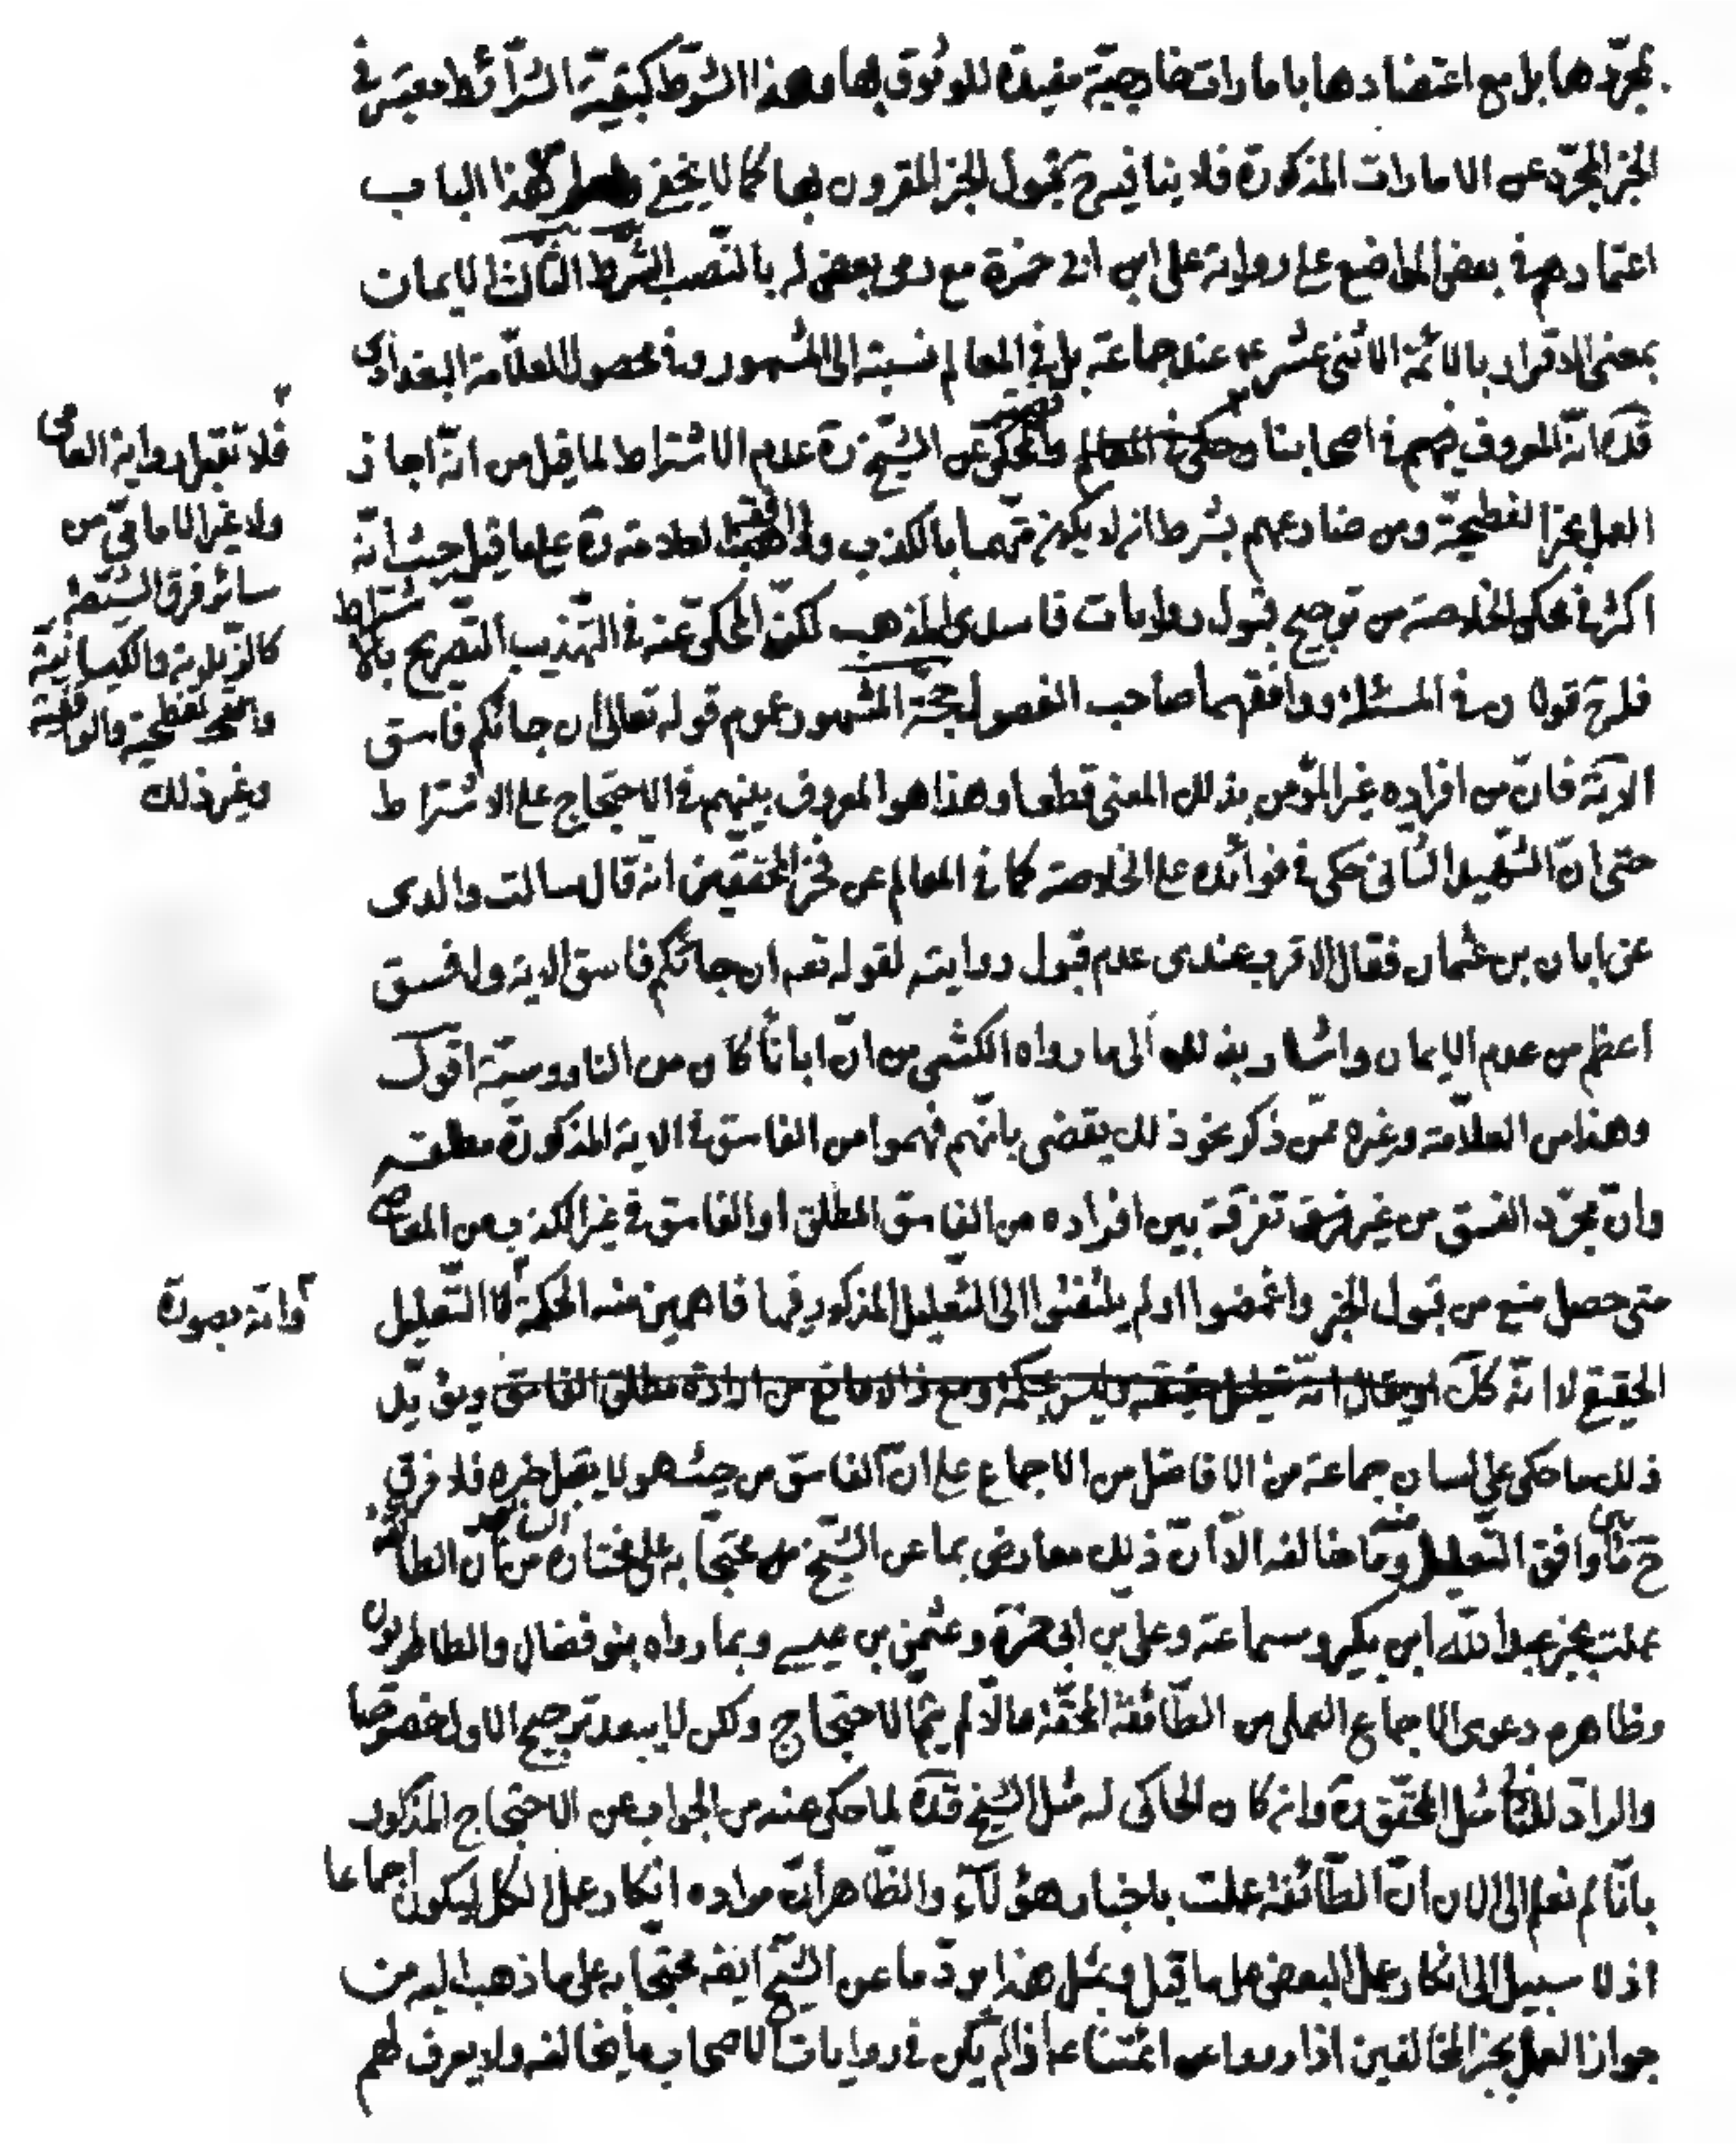 بمجرّدها بل مع اعتضادها بامارات خارجيّة مفيدة للوثوق بها وهذا الشرط كبقيّة الشرائط معتبر في
الخبر المجرّد عن الامارات المذكورة فلا ينافيه ح قبول الخبر المقرون بها كما لا يخفى هذا الباب
اعتمادهم في بعض المواضع على رواية على ابن ابى حمزة مع رمى بعض له بالنّصب الشّرط الثّالث الايمان
بمعنى الاقرار بالائمّة الاثنى عشر ع عند جماعة بل في المعالم نسبته الى المشهور وفى محصول للعلّامة البغدادى
قدّه انّه المعروف بينهم في اصحابنا والمحكىّ عن الشّيخ ره عدم الاشتراط لما قيل من انّه اجاز
العمل بخبر الفطحيّة ومن ضارعهم بشرط ان لا يكون متّهما بالكذب العلامة ره على ما قيل حيث انّه
اكثر في محكى الخلاصة من ترجيح قبول روايات فاسدى المذهب لكنّ المحكىّ عنه في التّهذيب التّصريح بالاشتراط
فله ح قولان في المسئلة ووافقهما صاحب الفصول حجّة المشهور عموم قوله تعالى ان جائكم فاسق
الآية فانّ من افراده غير المؤمن بذلك المعنى قطعا وهذا هو المعروف بينهم في الاحتجاج على الاشتراط
حتى انّ الشّهيد الثّانى حكى في فوائده على الخلاصة كما في المعالم عن فخر المحقّقين انه قال سالت والدى
عن ابان بن عثمان فقال الاقرب عندى عدم قبول روايته لقوله تعه ان جائكم فاسق الاية ولا فسق
اعظم من عدم الايمان واشار بذلك الى ما رواه الكشى من انّ ابانا كان من الناووسيّة اقول
وهذا من العلّامة وغيره ممّن ذكر نحو ذلك يقضى بانّهم فهموا من الفاسق في الاية المذكورة مطلقه
وانّ مجرّد الفسق من غير تفرقة بين افراده من الفاسق المطلق او الفاسق في غير الكذب من المعاصى
متى حصل منع من قبول الخبر واغمضوا او لم يلتفتوا الى التّعليل المذكور فيها فاهمين منه الحكمة لا التّعليل
الحقيقى لا انّه كلّ او يقال انّه تعليل حقيقة وليس بحكمة ومع ذا لا مانع من ارادة مطلق الفاسق ويؤيّد
ذلك ما حكى على لسان جماعة من الافاضل من الاجماع على انّ الفاسق من حيث هو لا يقبل خبره فلا فرق
ح بين ما وافق التّعليل منه وما خالفه الّا انّ ذلك معارض بما عن الشّيخ محتجّا به على مختاره من انّ الطائفة
عملت بخبر عبد اللّه ابن بكير وسماعة وعلى بن ابى حمزة وعثمن بن عيسى وبما رواه بنو فضال والطاطريون
وظاهره دعوى الاجماع العملى من الطّائفة المحقّة والّا لم يتمّ الاحتجاج ولكن لا يبعد ترجيح الاول خصوصا
والرادّ للثّانى مثل المحقّق ره وان كان الحاكى له مثل الشيخ قدّه لما حكى عنه من الجواب عن الاحتجاج المذكور
بانّا لم نعلم الى الان انّ الطّائفة عملت باخبار هؤلآء والظّاهر انّ مراده انكار عمل الكل ليكون اجماعا
اذ لا سبيل الى انكار عمل البعض على ما قيل وبمثل هذا يردّ ما عن الشّيخ ايضه محتجّا به على ما ذهب اليه من
جواز العمل بخبر المخالفين اذا رووا عن ائمّتنا ع اذا لم يكن في روايات الاصحاب ما يخالفه ولا يعرف لهم
فلا تقبل رواية العامى
ولا غير الامامىّ من
سائر فرق الشّيعة
كالزّيدية والكيسانيّة
والفطحيّة والواقفيّة
وغير ذلك
وانّه بصورة